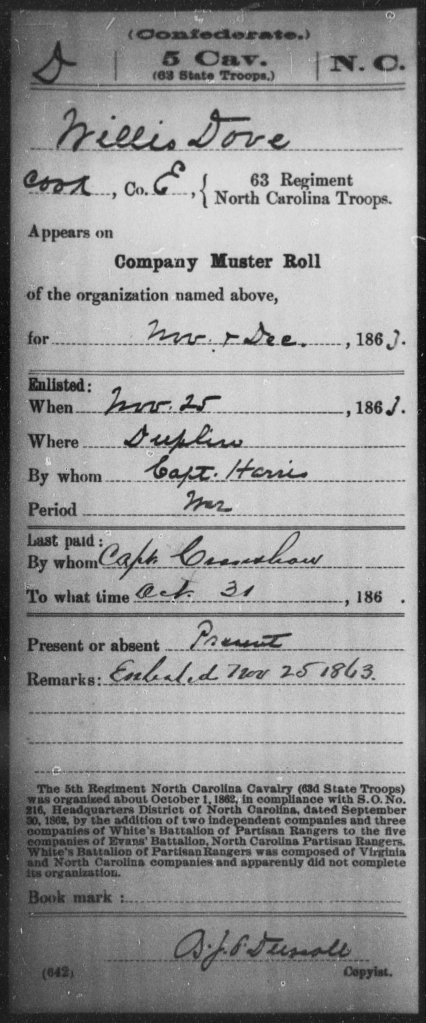 (Confederate.)
D | 5 Cav. | N. C.
(63 State Troops.)
Willis Dove
Cook, Co. E, { 63 Regiment
North Carolina Troops.
Appears on
Company Muster Roll
of the organization named above,
for Nov. & Dec., 1863.
Enlisted:
When Nov. 25, 1863.
Where Duplin
By whom Capt. Harris
Period War
Last paid:
By whom Capt
To what time Oct. 31, 186 .
Present or absent Present
Remarks: Enlisted Nov 25 1863.
The 5th Regiment North Carolina Cavalry (63d State Troops)
was organized about October 1, 1862, in compliance with S. O. No.
216, Headquarters District of North Carolina, dated September
30, 1862, by the addition of two independent companies and three
companies of White's Battalion of Partisan Rangers to the five
companies of Evans' Battalion, North Carolina Partisan Rangers.
White's Battalion of Partisan Rangers was composed of Virginia
and North Carolina companies and apparently did not complete
its organization.
Book mark :
(642) Copyist.